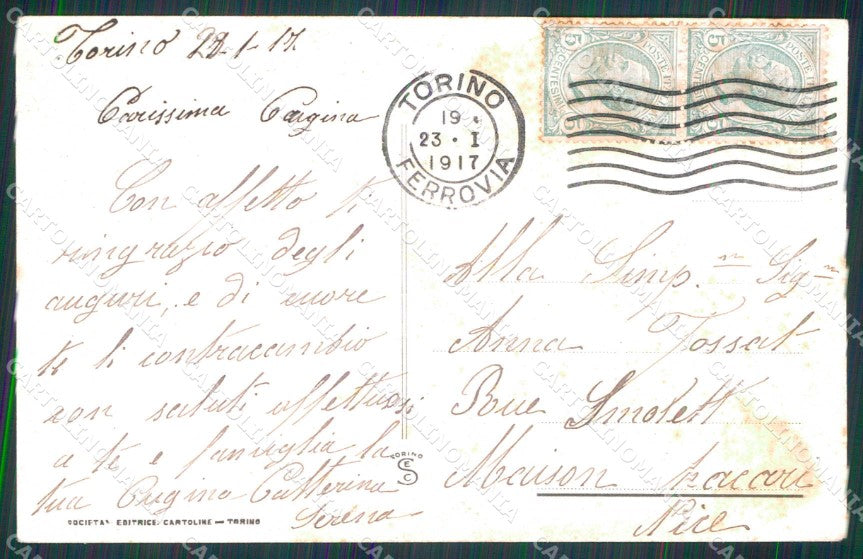 Torino 22-1-17.
Carissima Cugina
Con affetto ti
ringrazio degli
auguri, e di cuore
te li contraccambio
con saluti affettuosi
a te e famiglia la
tua Cugina Catterina
Serena
SOCIETA' EDITRICE CARTOLINE — TORINO
TORINO
SEC
TORINO
19
23 · I
1917
FERROVIA
POSTE
5
CENTESIMI
POSTE
5
CENTESIMI
Alla Simp.ma Sig.na
Anna Fossat
Rue Smolett
Maison
Nice
CARTOLINOMANIA